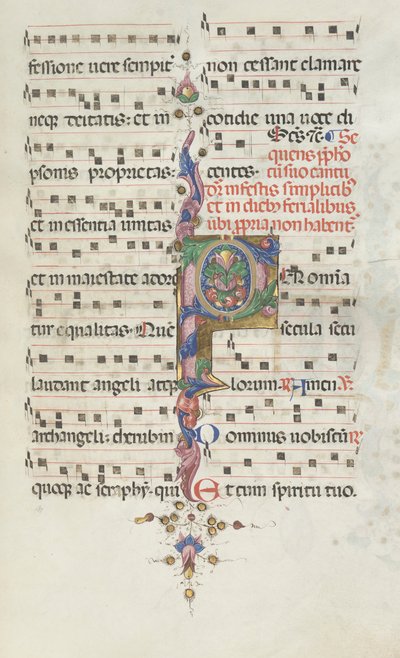 fessione uere sempit
neq; deitatis: et in
psonis proprietas
et in essentia unitas
et in maiestate adoro
tur equalitas. Quē
laudant angeli atq;
archangeli: cherubin
quoq; ac seraphy. qui
non cessant clamare
cotidie una uoce di
centes. Scūs. Se
quens
cū suo cantu
in festis simplicib
et in dieb ferialibus
ubi ppria non habent
Per omīa
secula secu
lorum R Amen V
Dominus uobiscū R
Et cum spiritu tuo.